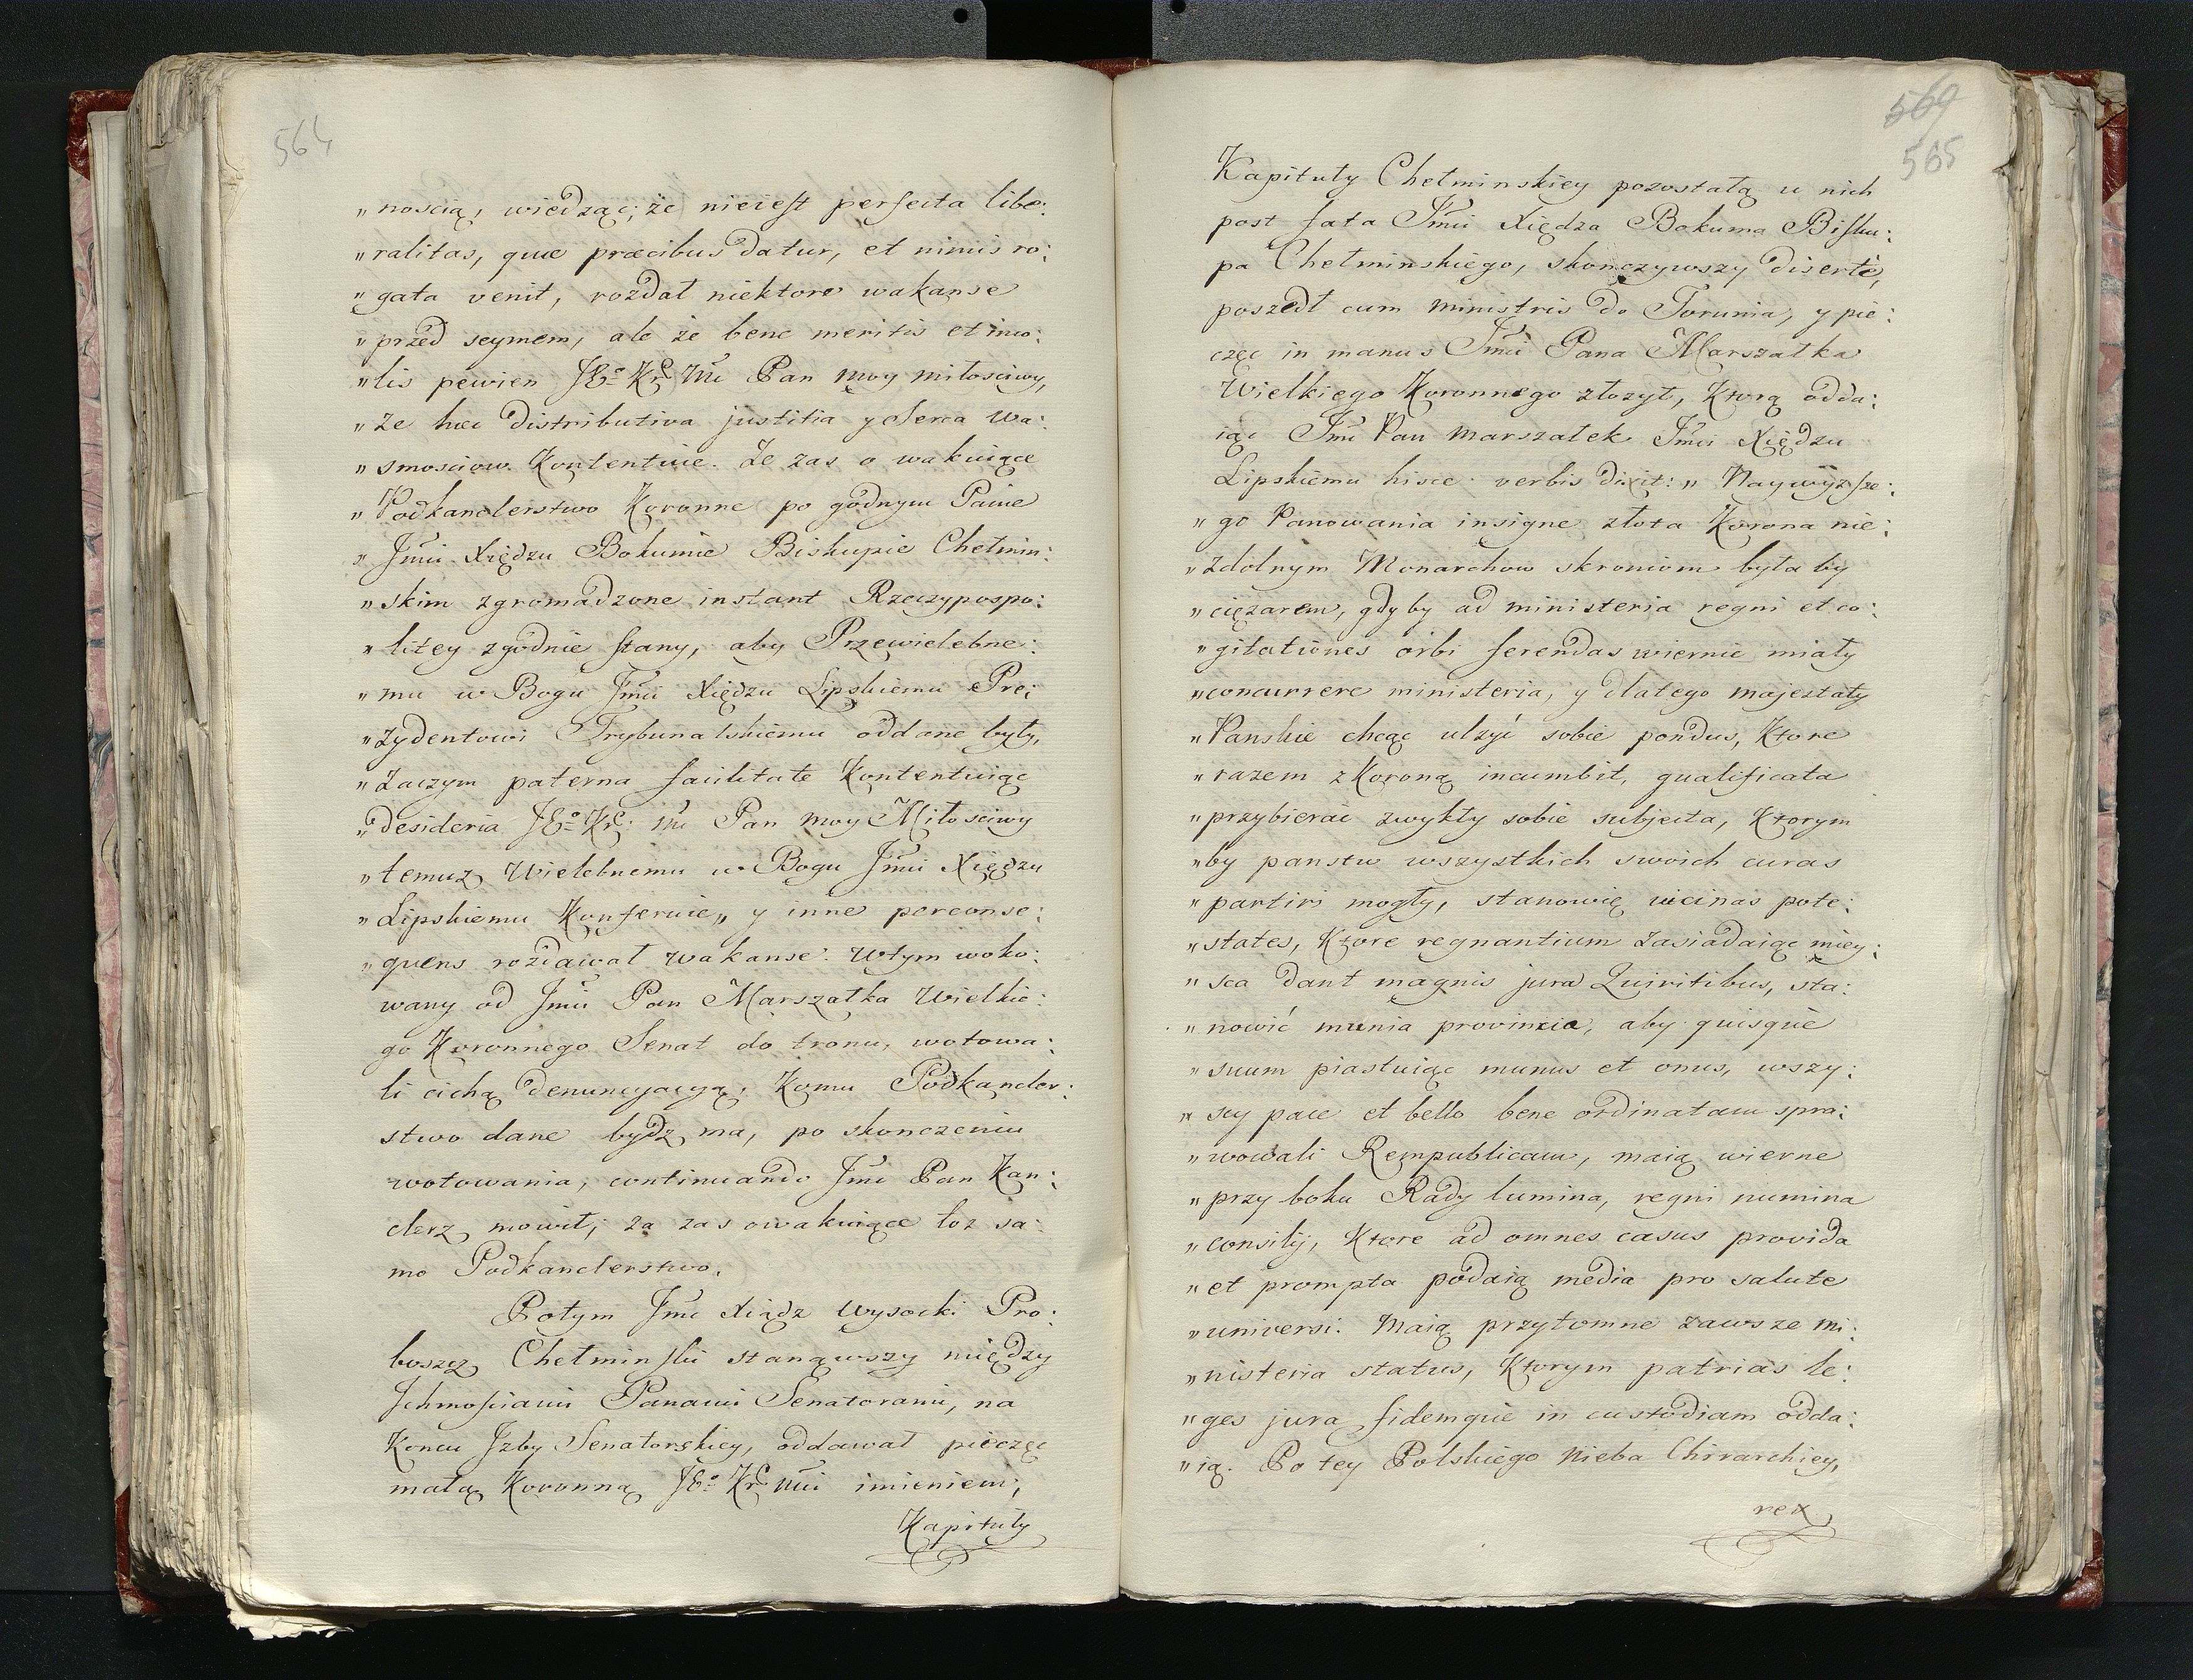 564
„nością, wiedząc; że nieiest perfecta libe:
„ralitas, quæ præcibus datur, et nimis ro:
„gata venit, rozdał niektore wakanse
„przed seymem, ale że bene meritis et inco:
„lis pewien JE:º Kr: Mć Pan moy miłosciwy,
„że hæc distributiva justitia y serca Wa:
„smosciow Kontentuie. Że zas o wakuiące
„Podkanclerstwo Koronne po godnym Panie
„Jmći Xiędzu Bokumie Biskupie Chełmin:
„skim zgromadzone instant Rzeczypospo:
„litey zgodnie stany, aby Przewielebne:
„mu w Bogu Jmći Xiędzu Lipskiemu Pre:
„zydentowi Trybunalskiemu oddane było,
„Zaczym paterna facilitate Kontentuiąc
„desideria JE:º Kr: Mć Pan moy Miłosciwy
„temuz Wielebnemu w Bogu Jmći Xiędzu
„Lipskiemu Konferuie„ y inne perconse:
„quens rozdawał wakanse. Wtym woko:
wany od Jmći Pan Marszałka Wielkie:
go Koronnego Senat do tronu, wotowa:
li cichą denuncyacyą, Komu Podkancler:
stwo dane bydz ma, po skonczeniu
wotowania, continuando Jmć Pan Kan:
clerz mowił; za zas owakuiące toz sa:
mo Podkanclerstwo.
Potym Jmć Xiądz Wysocki Pro:
boszcz Chełminski stanąwszy między
Ichmościami Panami Senatorami, na
Koncu Izby Senatorskiey, oddawał pieczęc
małą Koronną JE:º Kr: Mći imieniem;
Kapituły
569
565
Kapituły Chełminskiey pozostałą u nich
post fata Jmći Xiędza Bokuma Bisku:
pa Chełminskiego, skonczywszy disertè,
poszedł cum ministris do Torunia, y pie:
częc in manus Jmći Pana Marszałka
Wielkiego Koronnego złozył, Ktorą odda:
iąc Jmć Pan Marszałek Jmći Xiędzu
Lipskiemu hisce verbis dixit: „Naywyższe:
„go Panowania insigne złota Korona nie:
„zdolnym Monarchow skroniom byłaby
„ciężarem, gdyby ad ministeria regni et co:
„gitationes orbi ferendas wiernie miały
„concurrere ministeria, y dlatego majestaty
„Panskie chcąc ulzyć sobie pondus, Ktore
„razem z Koroną incumbit, qualificata
„przybierać zwykły sobie subjecta, Ktorym
„by panstw wszystkich swoich curas
„partiri mogły, stanowię vicinas pote:
„states, Ktore regnantium zasiadaiąc miey:
„sca dant magnis jura Quiritibus, sta:
„nowić munia provincia, aby quisque
„suum piastuiąc munus et onus, wszy:
„scy pace et bello bene ordinatam spra:
„wowali Rempublicam, maią wierne
„przy boku Rady lumina, regni numina
„consilij, Ktore ad omnes casus provida
„et prompta podaią media pro salute
„universi. Maią przytomne zawsze mi:
„nisteria status, Ktorym patrias le:
„ges jura fidemque in custodiam odda:
„ią. Po tey Polskiego Nieba Chirarchiey,
rex